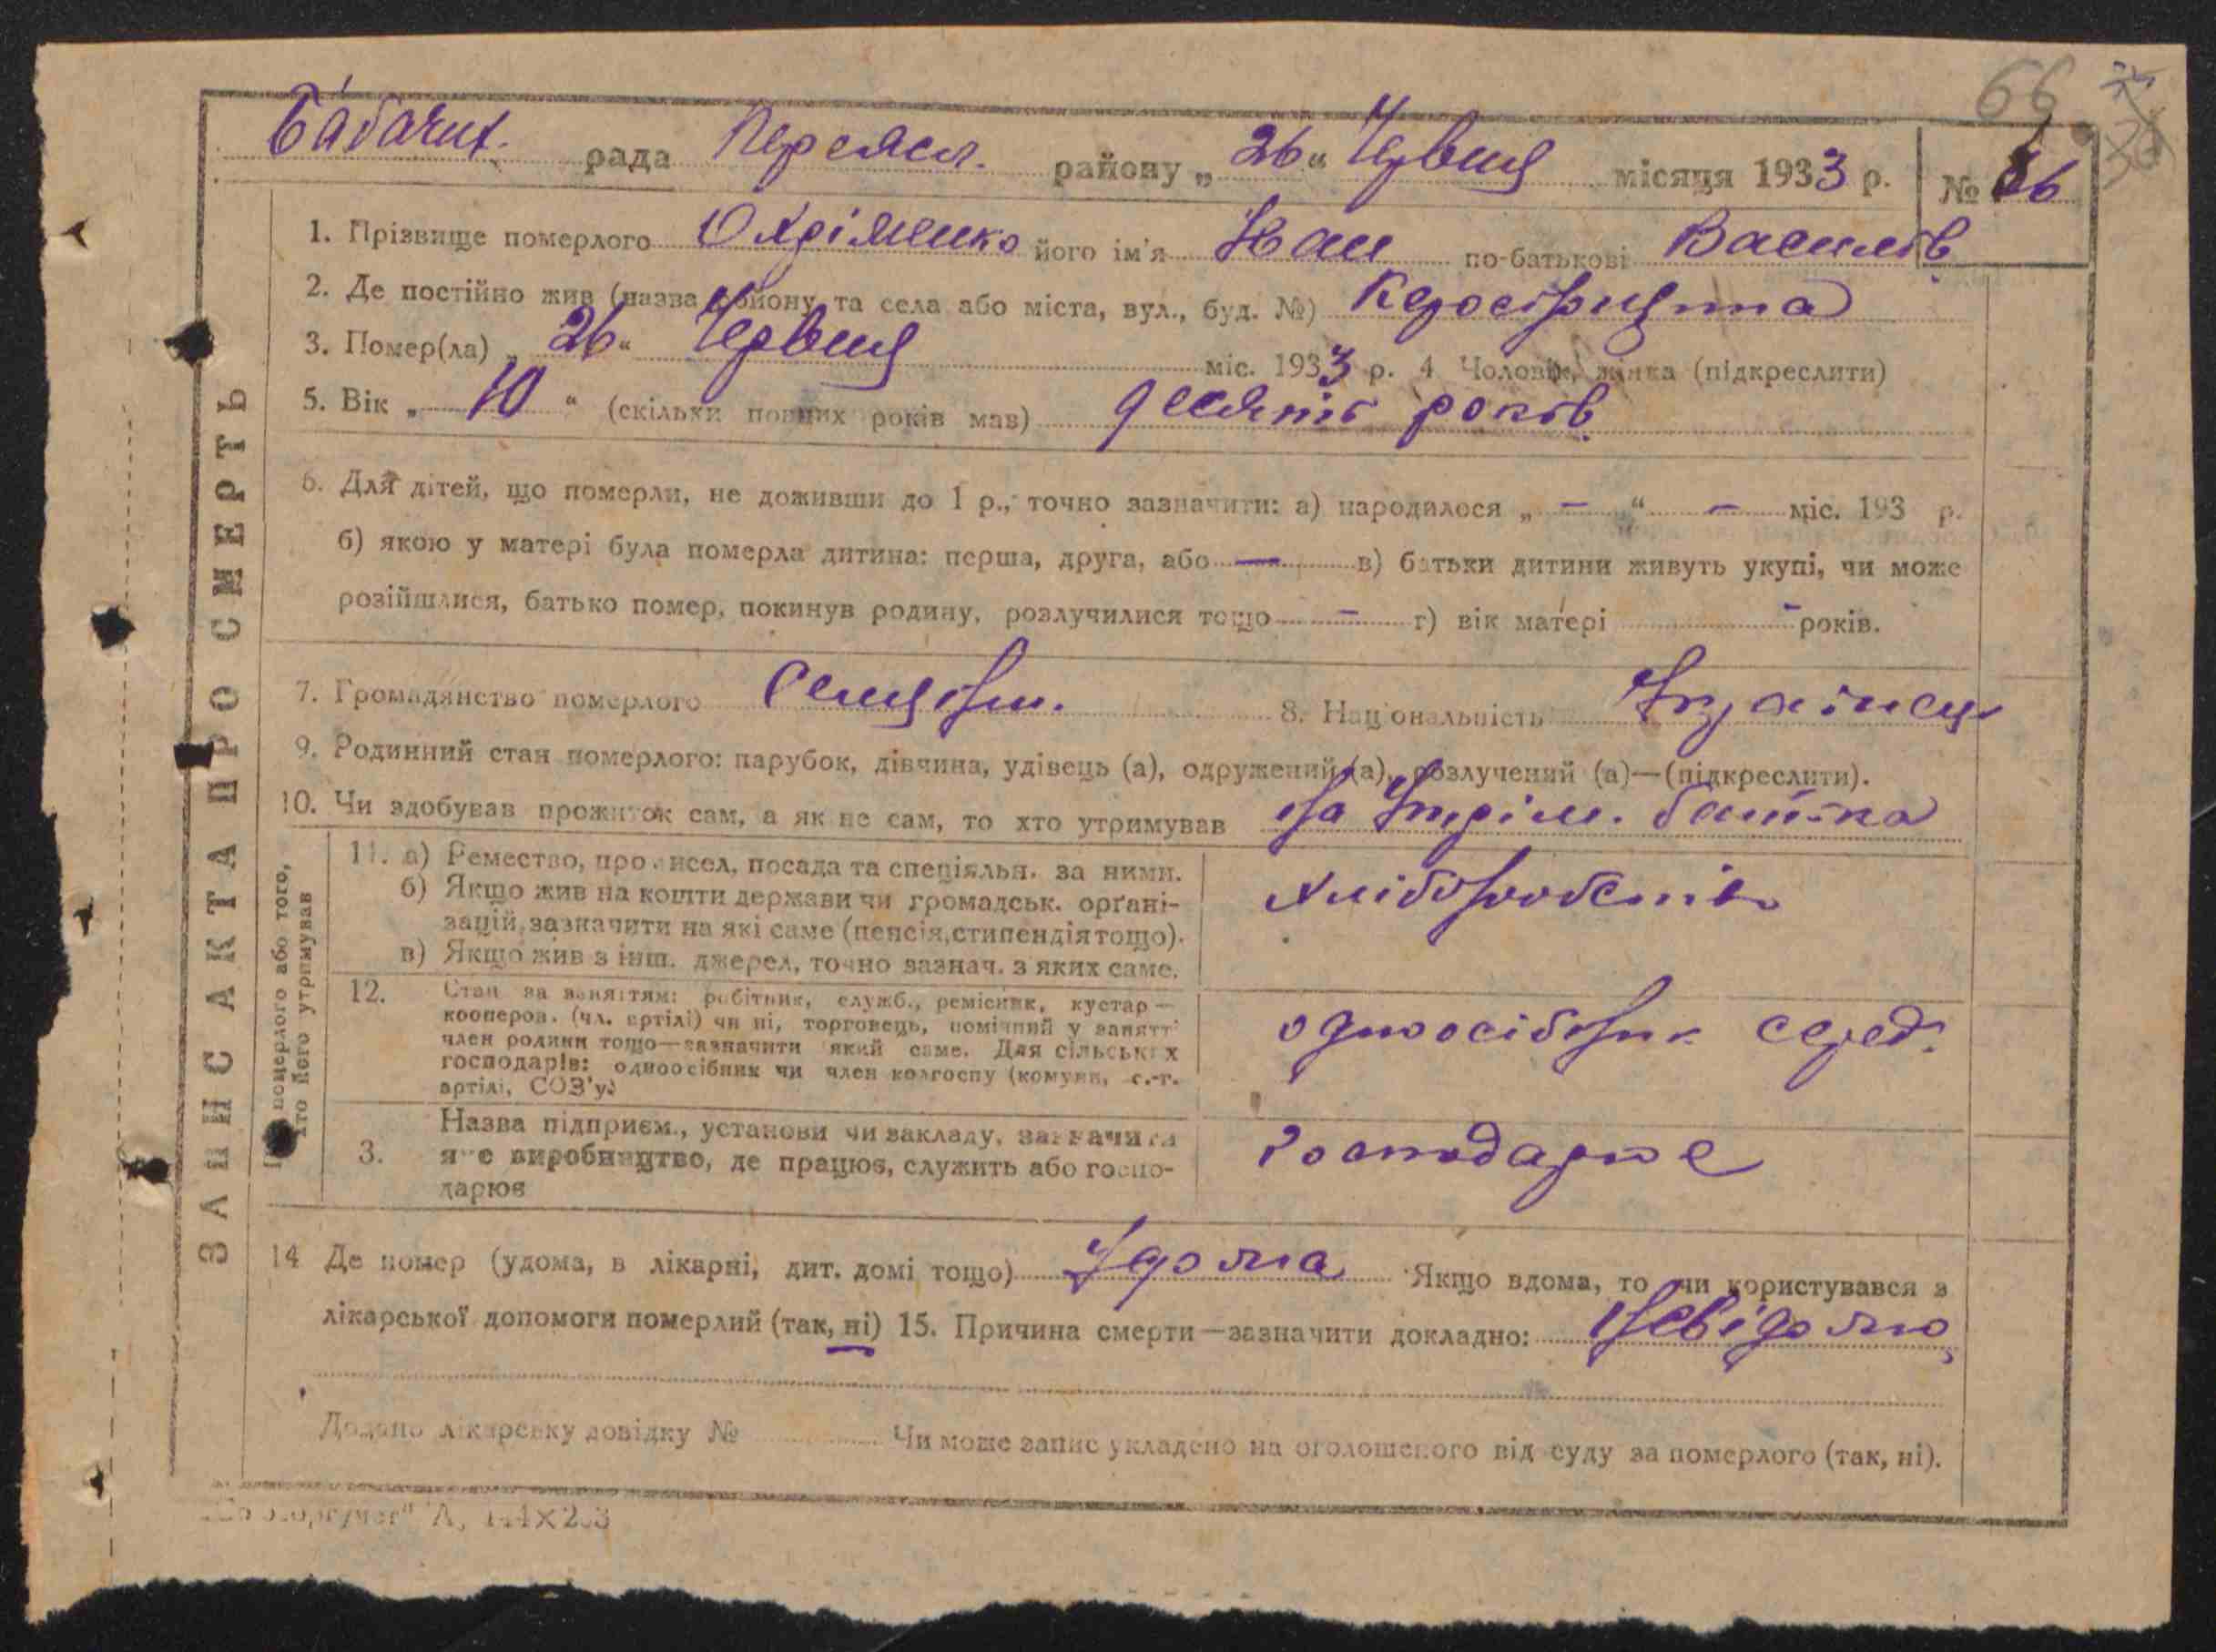 66
Бабачих. рада Переясл. району „ 26 “ Червня місяця 1933 р. № 36
1. Прізвище померлого Охріменко його ім'я Іван по-батькові Василів
2. Де постійно жив (назва району та села або міста, вул., буд. №)
3. Помер(ла) „ 26 “ Червня міс. 1933 р. 4 Чоловік, жінка (підкреслити)
5. Вік „ 10 “ (скільки повних років мав) десять років
6. Для дітей, що померли, не доживши до 1 р., точно зазначити: а) народилося „ — “ — міс. 193 р.
б) якою у матері була померла дитина: перша, друга, або — в) батьки дитини живуть укупі, чи може
розійшлися, батько помер, покинув родину, розлучилися тощо — г) вік матері - років.
7. Громадянство померлого 8. Національність Українець
9. Родинний стан померлого: парубок, дівчина, удівець (а), одружений (а), розлучений (а)—(підкреслити).
10. Чи здобував прожиток сам, а як не сам, то хто утримував На Утрім. батька
ЗАПИС АКТА ПРО СМЕРТЬ
померлого або того,
хто його утримував
11. а) Ремество, промисел, посада та спеціяльн. за ними.
б) Якщо жив на кошти держави чи громадськ. орґані-
зацій, зазначити на які саме (пенсія, стипендія тощо).
в) Якщо жив з інш. джерел, точно зазнач. з яких саме.
12. Стан за заняттям: робітник, служб., ремісник, кустар—
кооперов. (чл. артілі) чи ні, торговець, помічний у занятт
член родини тощо—зазначити який саме. Для сільських
господарів: одноосібник чи член колгоспу (комуни, с.-г.
артілі, СОЗ'у)
одноосібник серед.
3. Назва підприєм., установи чи закладу, зазначити
яке виробництво, де працює, служить або госпо-
дарює
господарює
14 Де помер (удома, в лікарні, дит. домі тощо) Удома Якщо вдома, то чи користувався з
лікарської допомоги померлий (так, ні) 15. Причина смерти—зазначити докладно: Невідомо
Додано лікарську довідку № Чи може запис укладено на оголошеного від суду за померлого (так, ні).